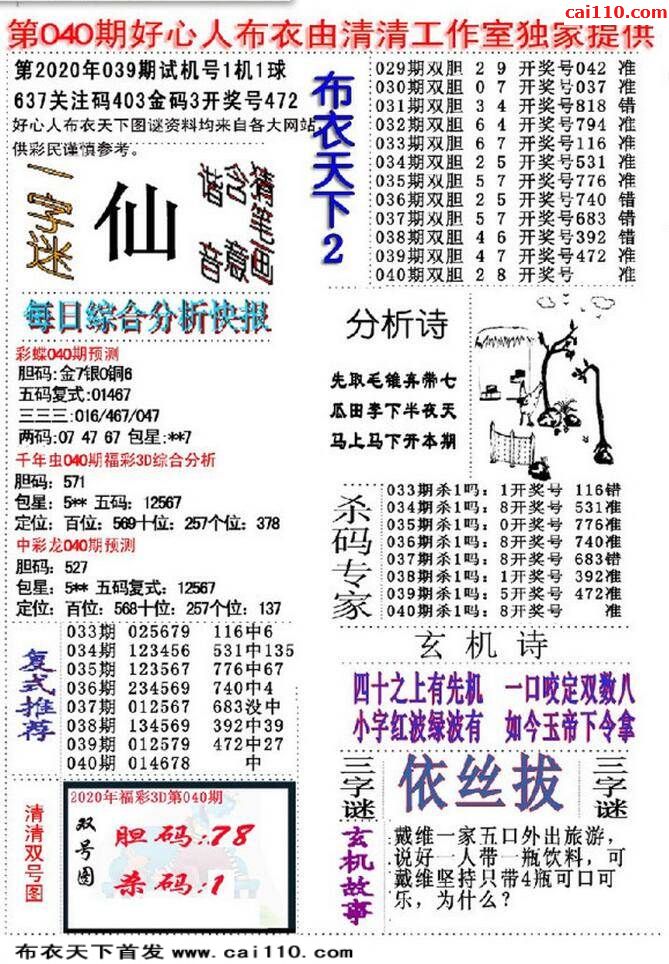 cai110.com
第040期好心人布衣由清清工作室独家提供
第2020年039期试机号1机1球
637关注码403金码3开奖号472
好心人布衣天下图谜资料均来自各大网站,
供彩民谨慎参考。
一字迷
仙
谐音
含意
猜笔画
布衣天下2
029期双胆 2 9 开奖号042 准
030期双胆 0 7 开奖号037 准
031期双胆 3 4 开奖号818 错
032期双胆 6 4 开奖号794 准
033期双胆 6 7 开奖号116 准
034期双胆 2 5 开奖号531 准
035期双胆 5 7 开奖号776 准
036期双胆 2 5 开奖号740 错
037期双胆 5 7 开奖号683 错
038期双胆 4 6 开奖号392 错
039期双胆 4 7 开奖号472 准
040期双胆 2 8 开奖号 准
每日综合分析快报
彩蝶040期预测
胆码:金7银0铜6
五码复式:01467
三三三:016/467/047
两码:07 47 67 包星:**7
千年虫040期福彩3D综合分析
胆码: 571
包星: 5** 五码: 12567
定位: 百位: 569十位: 257个位: 378
中彩龙040期预测
胆码: 527
包星: 5** 五码复式: 12567
定位: 百位: 568十位: 257个位: 137
分析诗
先取毛锥弃带七
瓜田李下半夜天
马上马下开本期
杀码专家
033期杀1吗: 1开奖号 116错
034期杀1吗: 8开奖号 531准
035期杀1吗: 0开奖号 776准
036期杀1吗: 8开奖号 740准
037期杀1吗: 8开奖号 683错
038期杀1吗: 1开奖号 392准
039期杀1吗: 5开奖号 472准
040期杀1吗: 8开奖号 准
复式推荐
033期 025679 116中6
034期 123456 531中135
035期 123567 776中67
036期 234569 740中4
037期 012567 683没中
038期 134569 392中39
039期 012579 472中27
040期 014678 中
玄机诗
四十之上有先机 一口咬定双数八
小字红波绿波有 如今玉帝下令拿
三字谜
依丝拔
三字谜
清清双号图
2020年福彩3D第040期
双号图
胆码:78
杀码:1
玄机故事
戴维一家五口外出旅游,
说好一人带一瓶饮料, 可
戴维坚持只带4瓶可口可
乐, 为什么?
布衣天下首发 www.cai110.com